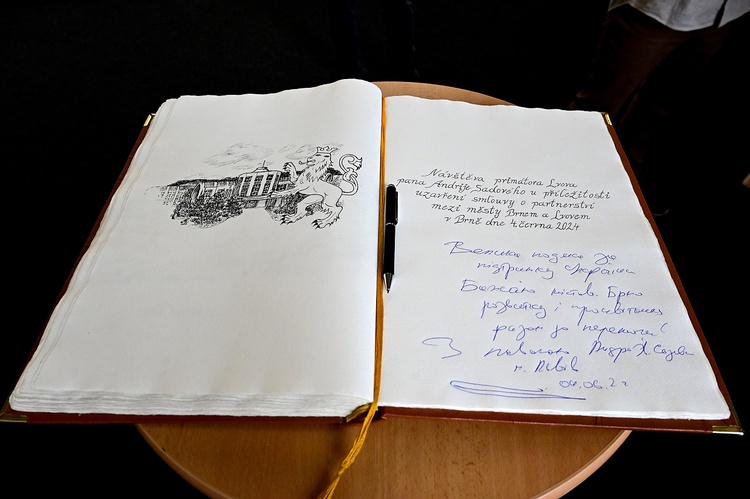 Návštěva primátora Lvova
pana Andrije Sadového u příležitosti
uzavření smlouvy o partnerství
mezi městy Brnem a Lvovem
v Brně dne 4. června 2024
Велика подяка за
підтримку України
Бажаю місту Брно
розвитку і процвітання
разом до перемоги!
З повагою Андрій Садовий
м. Львів
04.06.24